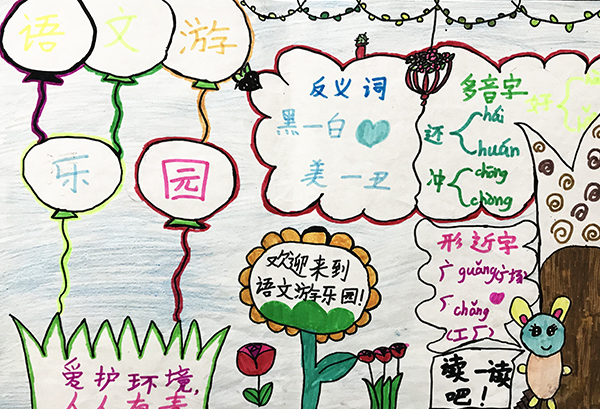 语文游
乐园
反义词
黑—白
美—丑
多音字
还 hái huán
冲 chōng chòng
好
形近字
广 guǎng 广场
厂 chǎng
(工厂)
欢迎来到
语文游乐园!
读一读
吧!
爱护环境,
人人有责